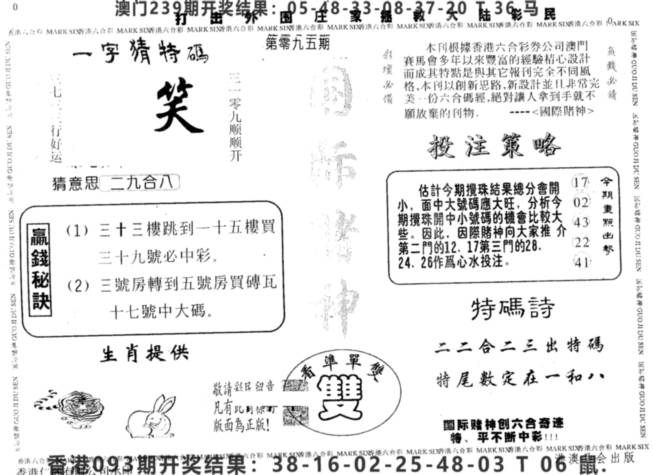 澳门239期开奖结果：05-48-33-08-37-20 T 36 马
打出外围庄家拯救大陆彩民
第零九五期
一字猜特碼
笑
三七
三行好运
三一零九顺顺开
猜意思 二九合八
彩壇必備
本刊根據香港六合彩劵公司澳門
賽馬會多年以來豐富的經驗精心設計
而成其特點是與其它報刊完全不同風
格,本刊以創新思路,新設計並且非常完
美一份六合碼經,絕對讓人拿到手就不
願放棄的刊物. ----<國際賭神>
投注策略
估計今期攪珠結果總分會開
小，面中大號碼應大旺，分析今
期攪珠開中小號碼的機會比較大
些。因此，因際賭神向大家推介
第二門的12．17第三門的28．
24．26作爲心水投注。
17
02
43
22
41
今期重照出擊
贏錢秘訣
(1) 三十三樓跳到一十五樓買
三十九號必中彩．
(2) 三號房轉到五號房買磚瓦
十七號中大碼．
國際賭神
特碼詩
二二合二三出特碼
特尾數定在一和八
生肖提供
敬請彩民留音
凡有此商標的
版面為正版!
看準單雙
雙
国际赌神创六合奇迹
特、平不断中彩!!!
香港093期开奖结果：38-16-02-25-48-03 T 06 鼠